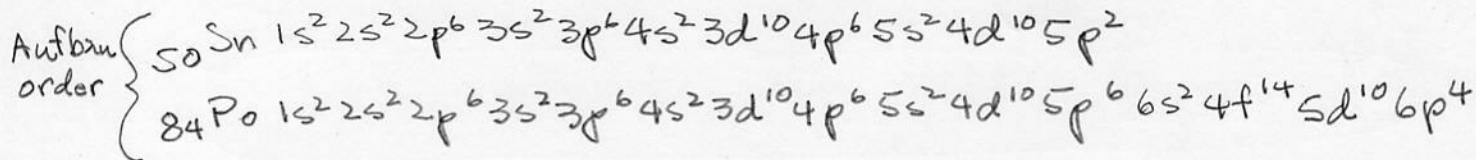 Aufbau order { ₅₀Sn 1s²2s²2p⁶3s²3p⁶4s²3d¹⁰4p⁶5s²4d¹⁰5p²
₈₄Po 1s²2s²2p⁶3s²3p⁶4s²3d¹⁰4p⁶5s²4d¹⁰5p⁶6s²4f¹⁴5d¹⁰6p⁴